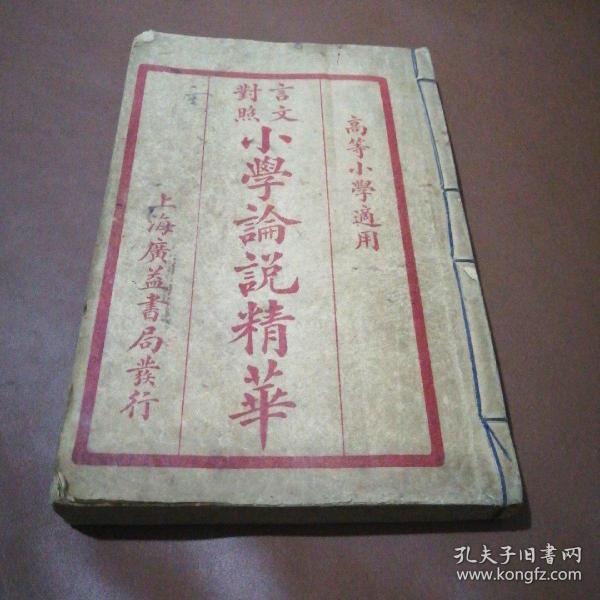 高等小學適用
言文
對照
小學論説精華
上海廣益書局發行
孔夫子旧书网
www.kongfz.com